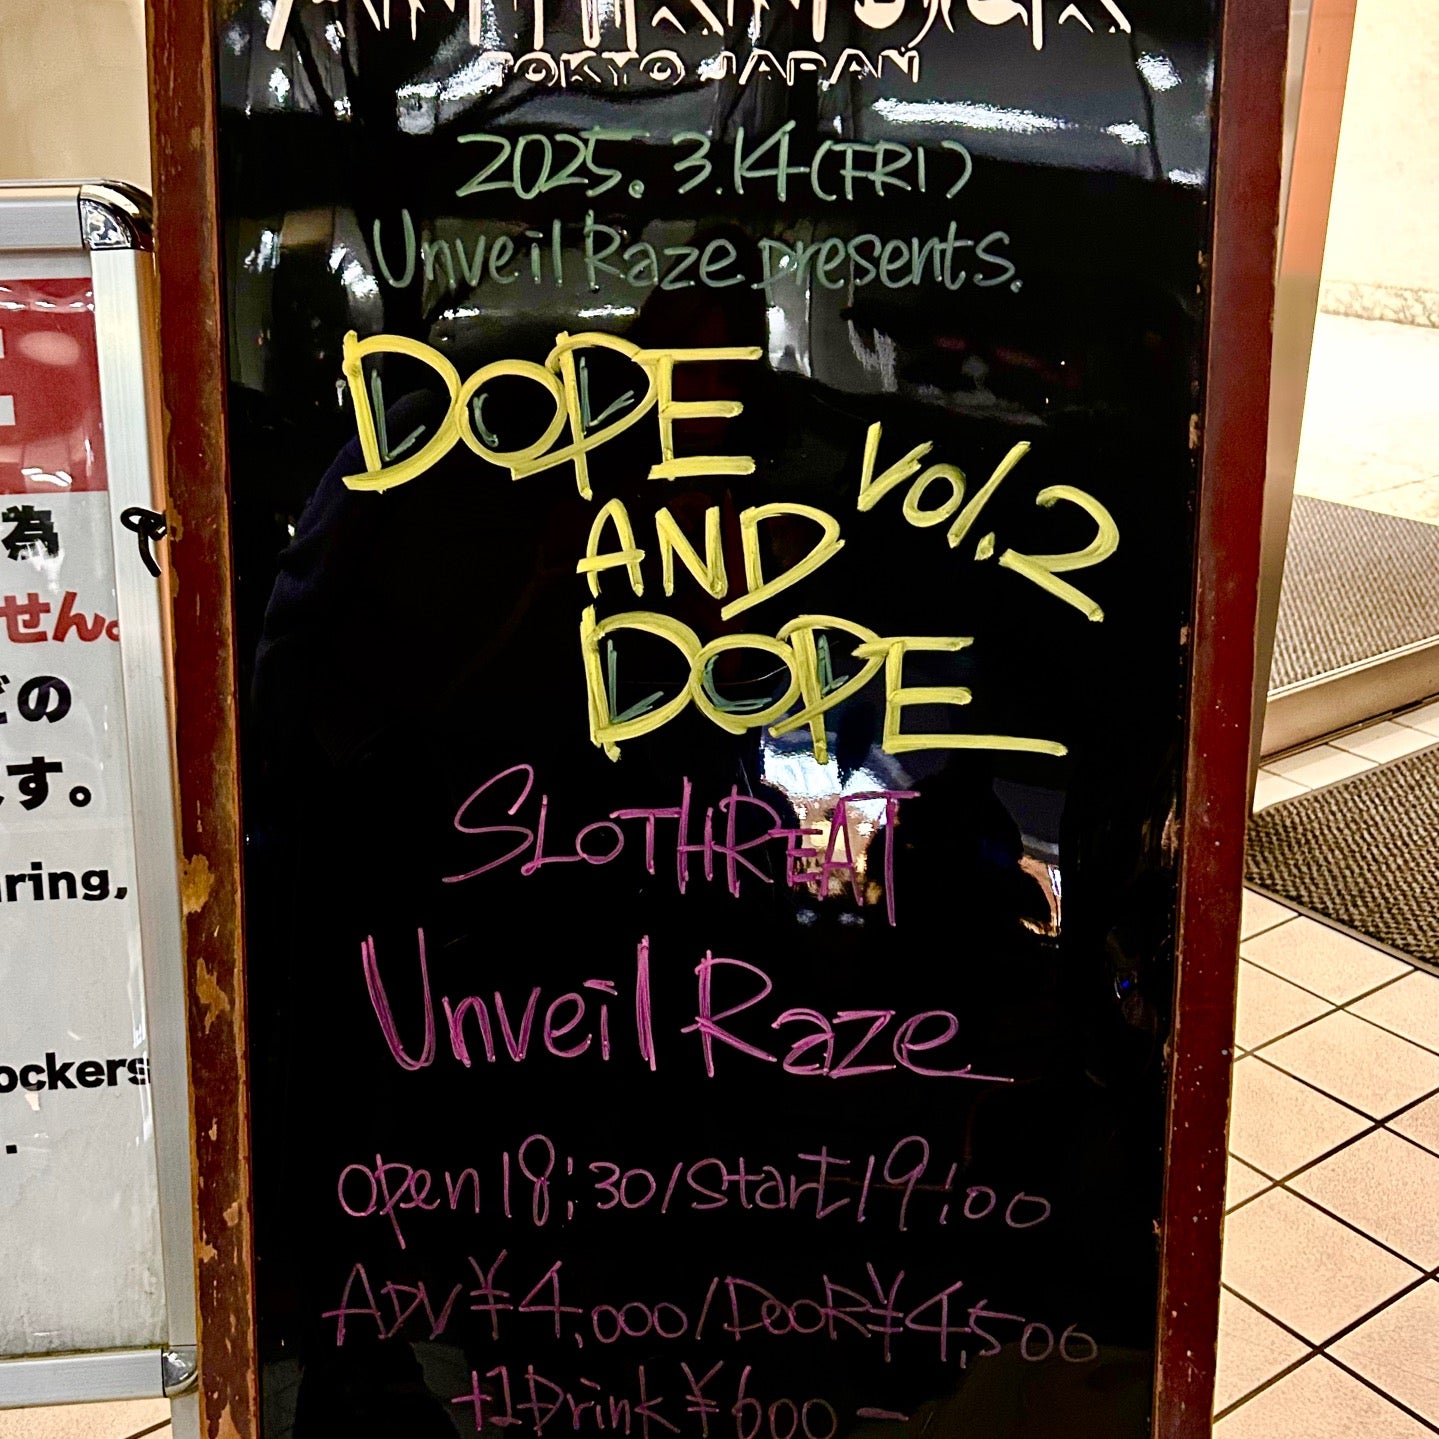 TOKYO JAPAN
2025. 3.14(FRI)
Unveil Raze presents.
DOPE
AND
DOPE
vol.2
SLOTHREAT
Unveil Raze
open 18:30/start 19:00
ADV ¥4,000/DooR ¥4,500
+1Drink ¥600-
為
せん。
の
す。
ring,
ockers
.